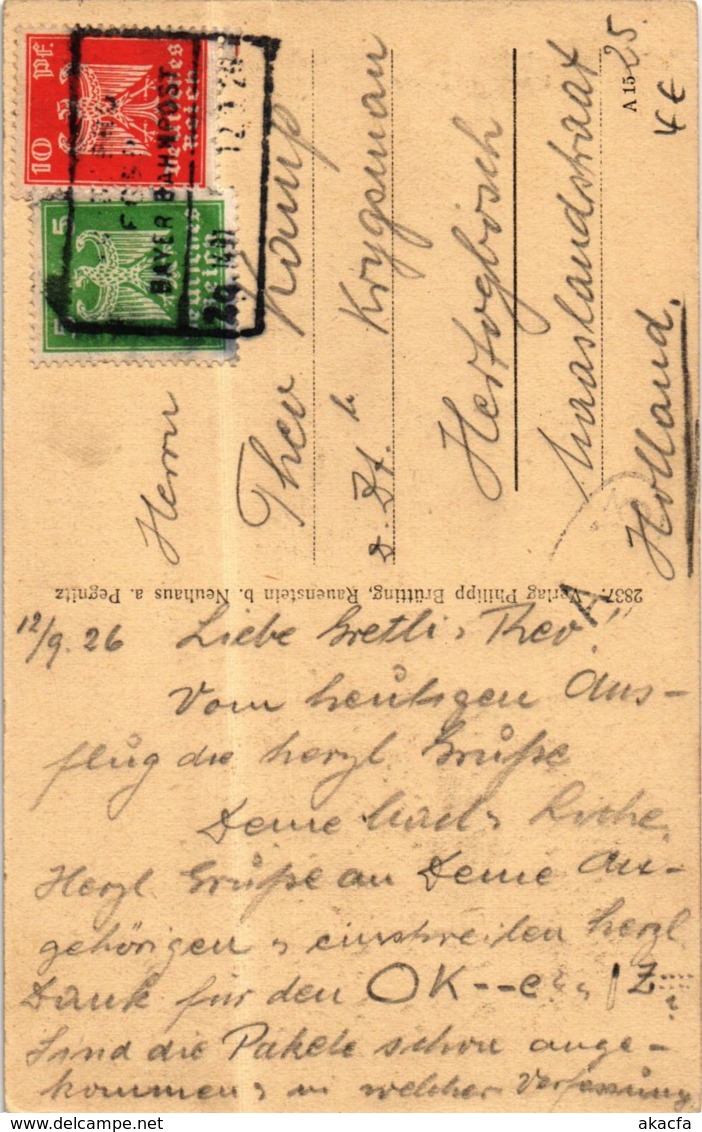 10 Pf.
Deutsches
Reich
5
Deutsches
Reich
BAYER BAHNPOST
Herrn
Theo Kamp
Krygsman
Hertogbosch
Maaslandstraat
Holland.
A 15-25
4 €
2837. Verlag Philipp Brütting, Rauenstein b. Neuhaus a. Pegnitz
A
12/9.26 Liebe Gretli, Theo!
Vom heutigen Aus-
flug die herzl. Grüße
Deine
Herzl Grüße an Deine An-
gehörigen herzl
Dank für den OK--e
Sind die Pakete schon ange-
kommen, in welcher Verfassung
akacfa